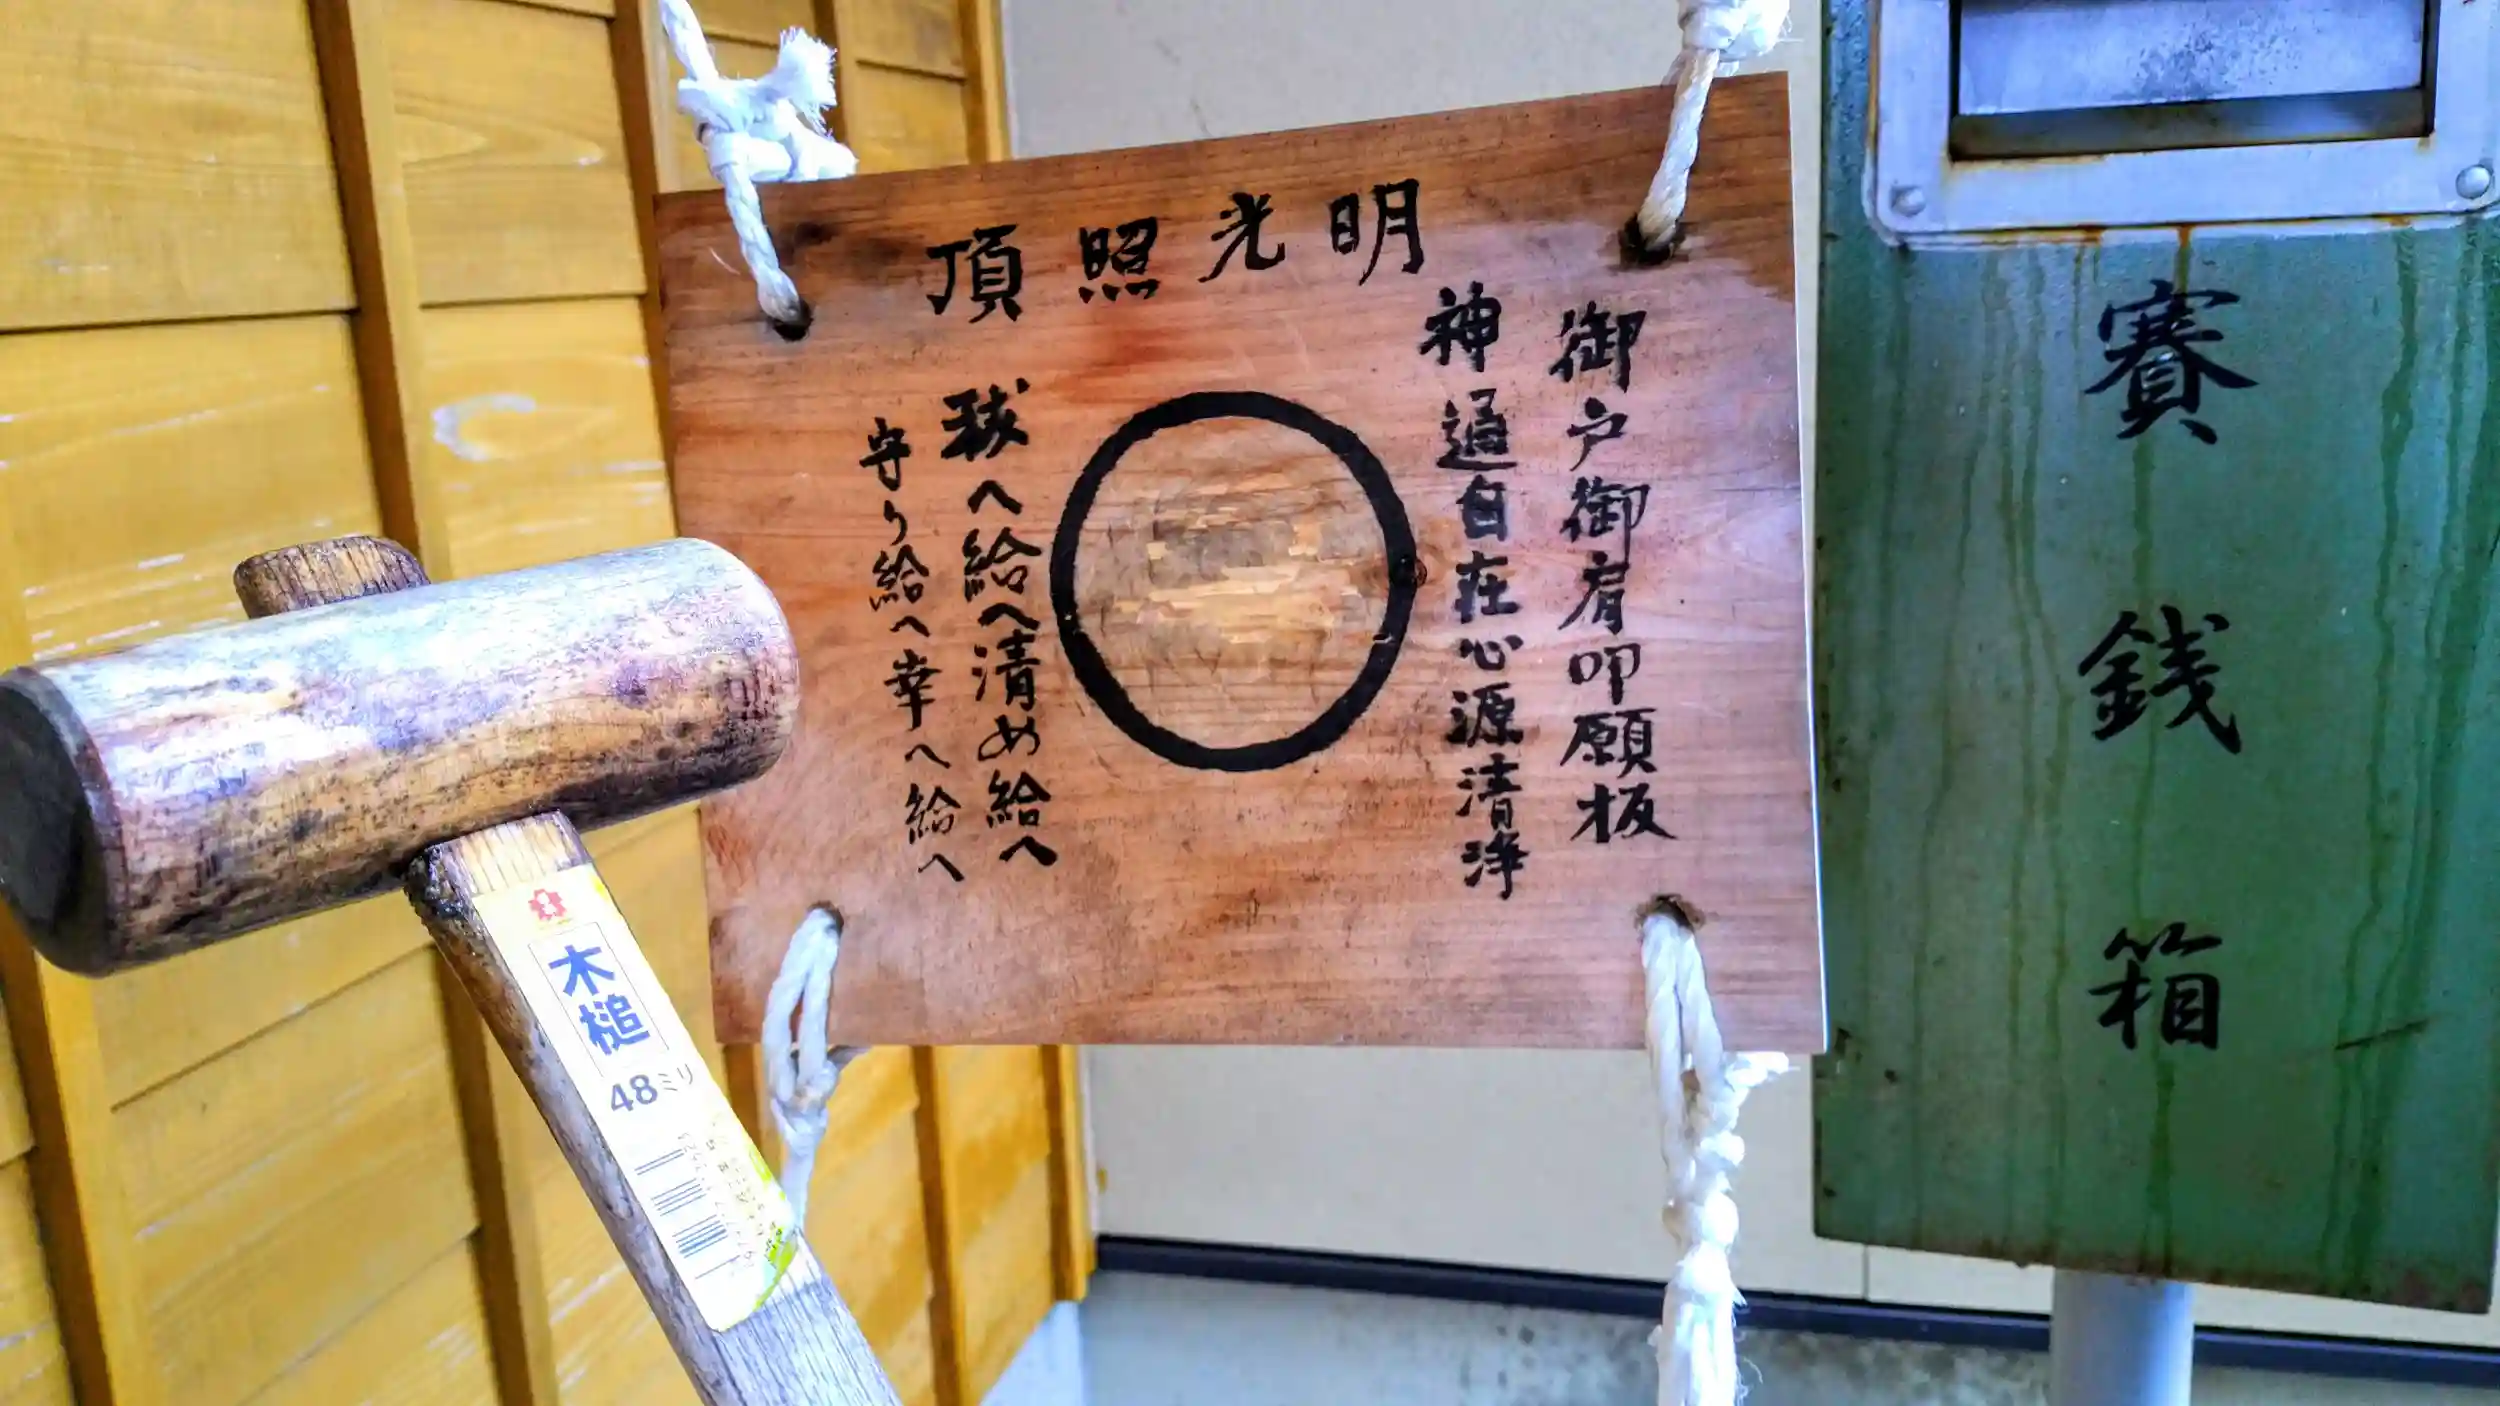 明光照頂
御戸御肩叩願板
神通自在心源清浄
祓へ給へ清め給へ
守り給へ幸へ給へ
賽銭箱
木槌
48ミリ